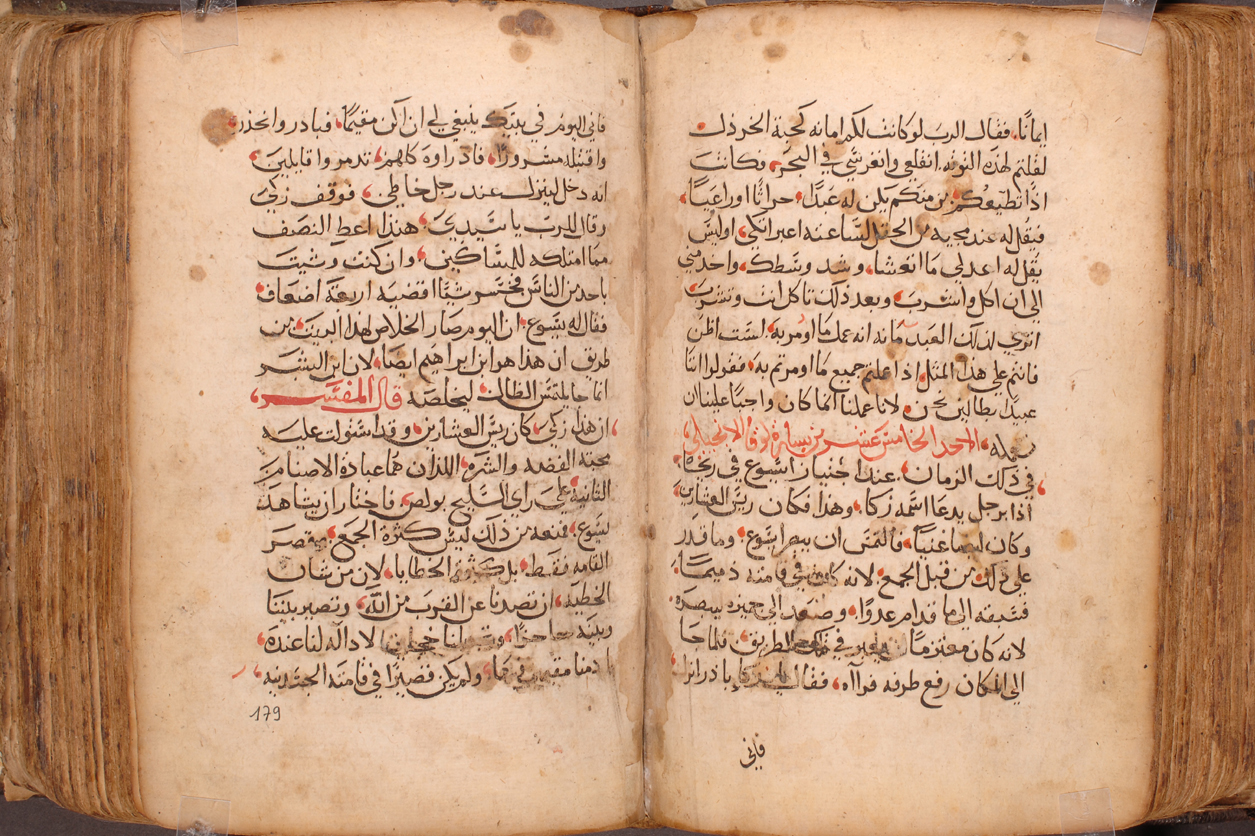 ايمانًا، فقال الرب لو كانت لكم امانه كحبة الخردل
لقلتم لهذه التوته انقلعي وانغرسي في البحر، فكانت
اذًا تطيعكم، من منكم يكن له عبدًا، حراثًا او راعيًا
فيقل له عند مجيه من الحقل للساعته اعبر اتكي، اوليس
يقل له اعد لي ما اتعشا، وشد وسطك، واخدمني
الى ان اكل واشرب، وبعد ذلك تاكل انت وتشرب
اترى لذلك العبد مانه انه عمل ما اومر به، لست اظن
فانتم على هذا المثل، اذا عملتم جميع ما اومرتم به، فقولوا اننا
عبيدًا بطالين نحن، لاننا عملنا انما كان واجبًا علينا ان
نعمله، الاحد الخامس عشر من بشارة لوقا الانجيلي
في ذلك الزمان، عند اختيار ايسوع في ريحا
اذا برجل يدعا اسمه زكا، وهذا فكان ريس العشارين
وكان ايضا غنيًا، فالتمس ان يبصر ايسوع، وما قدر
على ذلك من قبل الجمع، لانه كان في قامته ذميمًا
فسبقه الى ما قدام عدوًا، وصعد الى جميزه ليبصره
لانه كان معتزمًا ان يعبر في تلك الطريق، فلما جا
الى المكان رفع طرفه فراآه، فقال له يا زكا بادر انزل
فاني
فاني اليوم في بيتك ينبغي لي ان اكن مقيمًا، فبادر وانحذر
واقتبله مسرورًا، فاذ راوه كلهم، تدمروا قايلين
انه دخل لينزل عند رجل خاطي، فوقف زكي
وقال للرب يا سيدي، هنذا اعطِ النصف
مما امتلكه للمساكين، وان كنت وشيت
باحد من الناس فبخسته شيًا اقضيه اربعة اضعاف
فقال له يسوع، ان اليوم صار الخلاص لهذا البيت، من
طريق ان هذا هو ابن ابراهيم ايضًا، لان ابن البشر
انما جا يلتمس الظالت ليخلصه قال المفسر
ان هذا زكي، كان ريس العشارين، وقد استولت عليه
محبة الفضه والشره، اللذان هما عبادة الاصنام
الثانيه على راى السليح بولص، فاختار ان يشاهد
يسوع، فمنعه من ذلك ليس كثرة الجمع، وقصر
القامه فقط، بل كثرة الخطايا، لان من شان
الخطيه، ان تصدنا عن القرب من الله، وتصير بيننا
وبينه حاجزًا، لا داله لنا عنده
ما دمنا مقيمين فيها، ولم يكن قصيرًا في قامته الجسدنيه
179